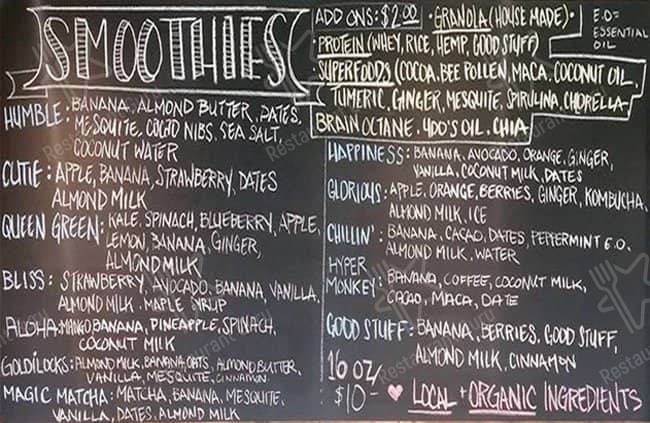 SMOOTHIES
HUMBLE: BANANA, ALMOND BUTTER, DATES,
MESQUITE, COCAO NIBS, SEA SALT,
COCONUT WATER
CUTIE: APPLE, BANANA, STRAWBERRY, DATES
ALMOND MILK
QUEEN GREEN: KALE, SPINACH, BLUEBERRY, APPLE,
LEMON, BANANA, GINGER,
ALMOND MILK
BLISS: STRAWBERRY, AVOCADO, BANANA, VANILLA,
ALMOND MILK, MAPLE SYRUP
ALOHA: MANGO BANANA, PINEAPPLE, SPINACH,
COCONUT MILK
GOLDILOCKS: ALMOND MILK, BANANA, OATS, ALMOND BUTTER,
VANILLA, MESQUITE, CINNAMON
MAGIC MATCHA: MATCHA, BANANA, MESQUITE,
VANILLA, DATES, ALMOND MILK
ADD ONS: $2.00 • GRANOLA (HOUSE MADE) •
• PROTEIN (WHEY, RICE, HEMP, GOOD STUFF)
• SUPERFOODS (COCOA, BEE POLLEN, MACA, COCONUT OIL,
TUMERIC, GINGER, MESQUITE, SPIRULINA, CHLORELLA
BRAIN OCTANE, UDO'S OIL, CHIA
E.O=
ESSENTIAL
OIL
HAPPINESS: BANANA, AVOCADO, ORANGE, GINGER,
VANILLA, COCONUT MILK, DATES
GLORIOUS: APPLE, ORANGE, BERRIES, GINGER, KOMBUCHA,
ALMOND MILK, ICE
CHILLIN': BANANA, CACAO, DATES, PEPPERMINT E.O.
ALMOND MILK, WATER
HYPER
MONKEY: BANANA, COFFEE, COCONUT MILK,
CACAO, MACA, DATE
GOOD STUFF: BANANA, BERRIES, GOOD STUFF,
ALMOND MILK, CINNAMON
16 OZ/
$10- ♥ LOCAL + ORGANIC INGREDIENTS